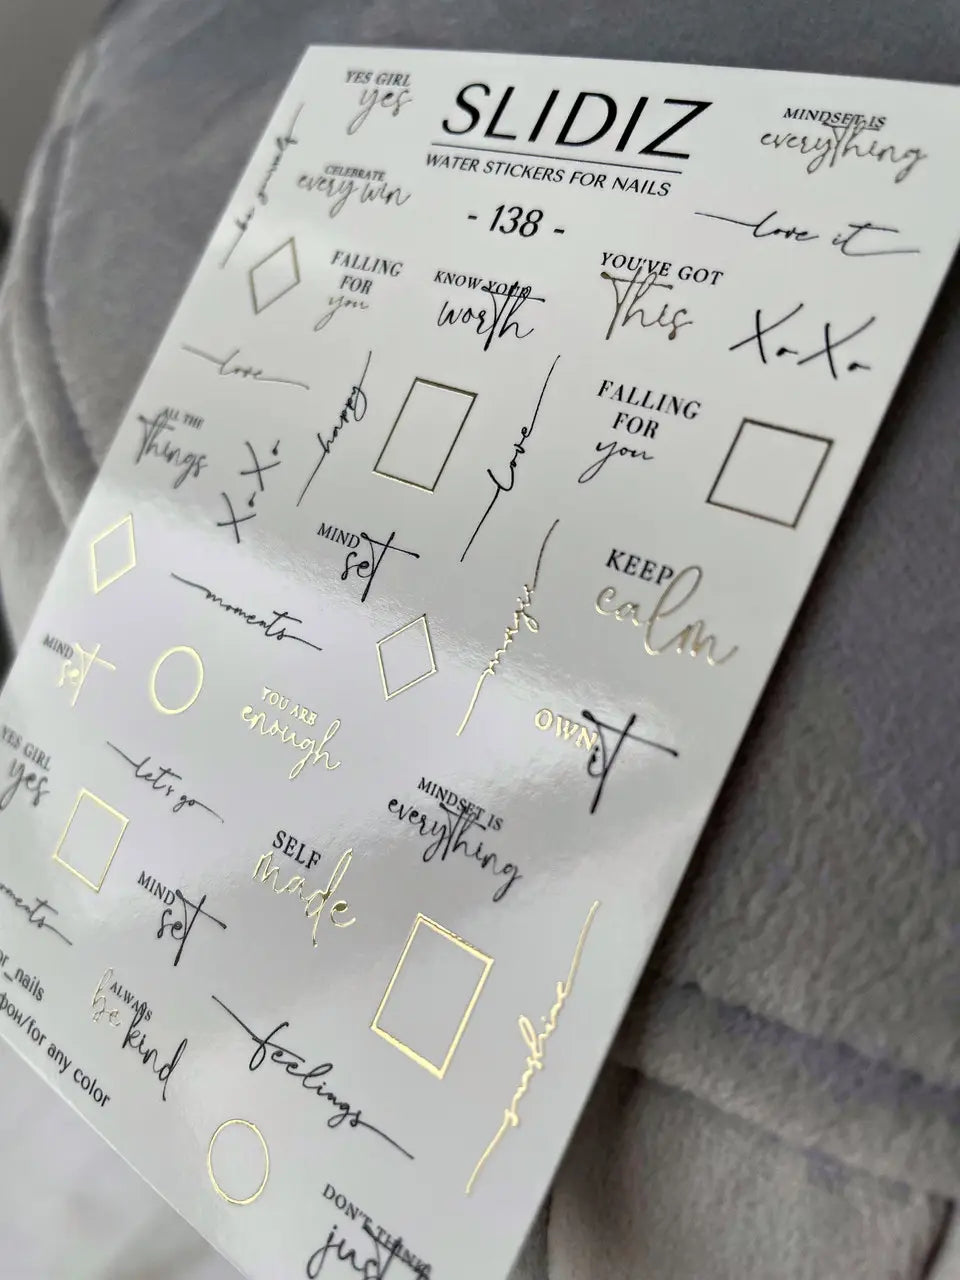 YES GIRL
yes
SLIDIZ
WATER STICKERS FOR NAILS
- 138 -
MINDSET IS
everything
be yourself
CELEBRATE
every win
love it
FALLING
FOR
you
KNOW YOUR
worth
YOU'VE GOT
This
XoXo
love
happy
love
FALLING
FOR
you
ALL THE
Things
XoXo
MIND
set
KEEP
calm
moments
MIND
set
YOU ARE
enough
OWN
it
YES GIRL
yes
let's go
MINDSET IS
everything
SELF
made
MIND
set
sunshine
_nails
ALWAYS
be kind
фон/for any color
feelings
DON'T THINK
just